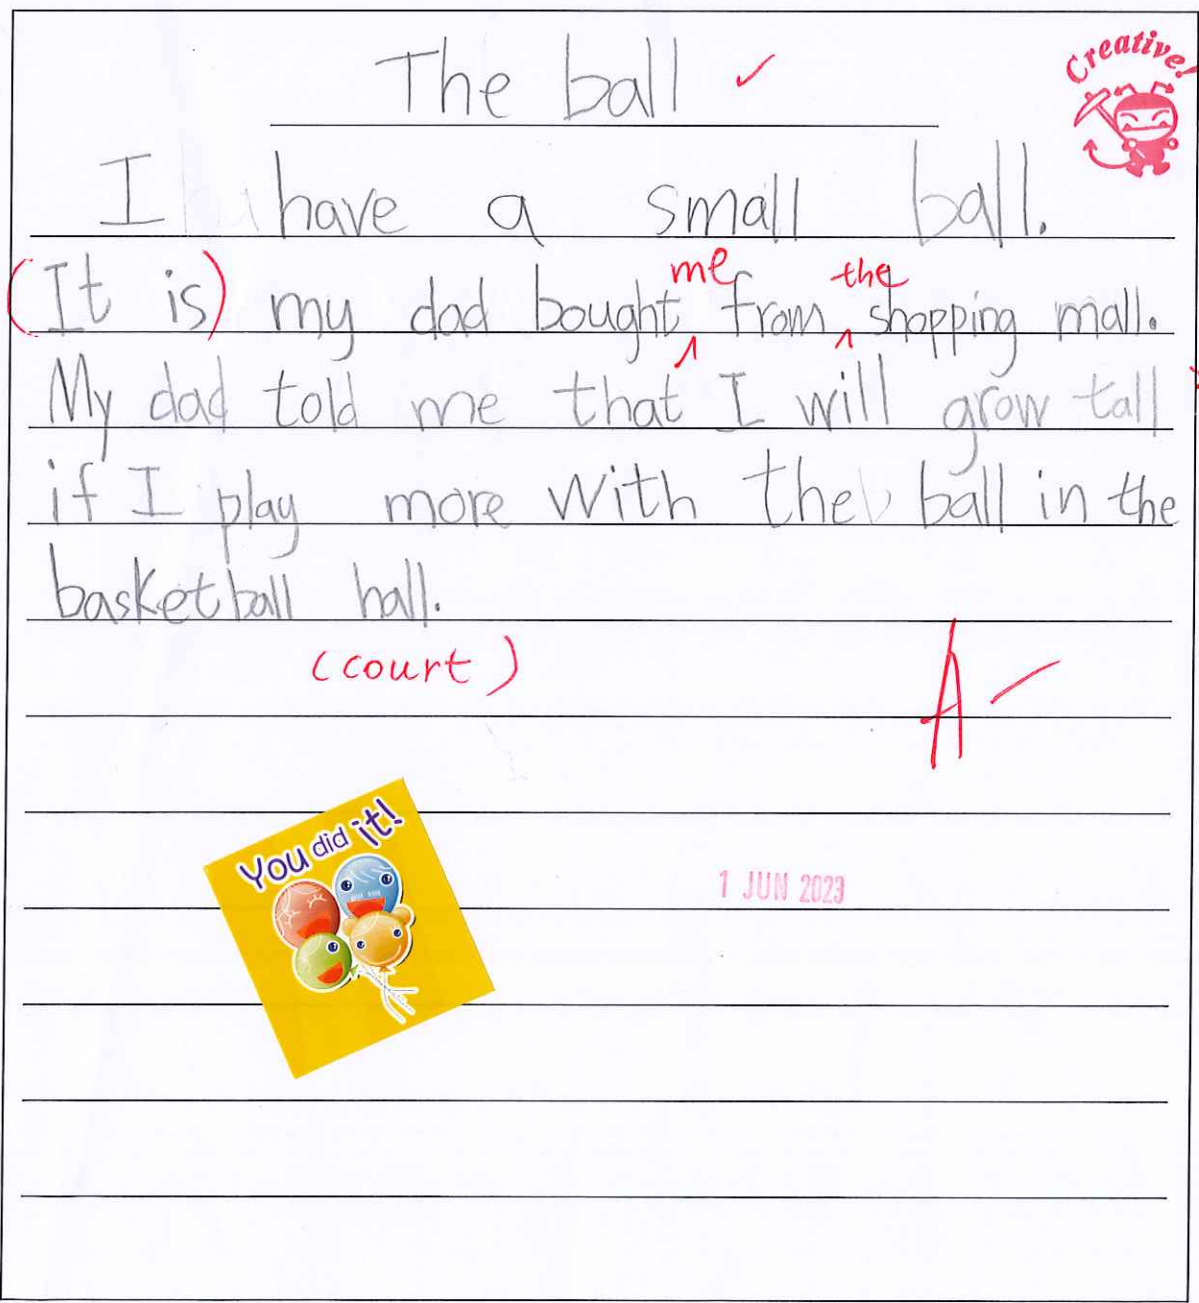 The ball ✓
Creative!
I have a small ball.
me the
(It is) my dad bought ^ from ^ shopping mall.
My dad told me that I will grow tall
if I play more with the ball in the
basketball hall.
(court)
A-
You did it!
1 JUN 2023